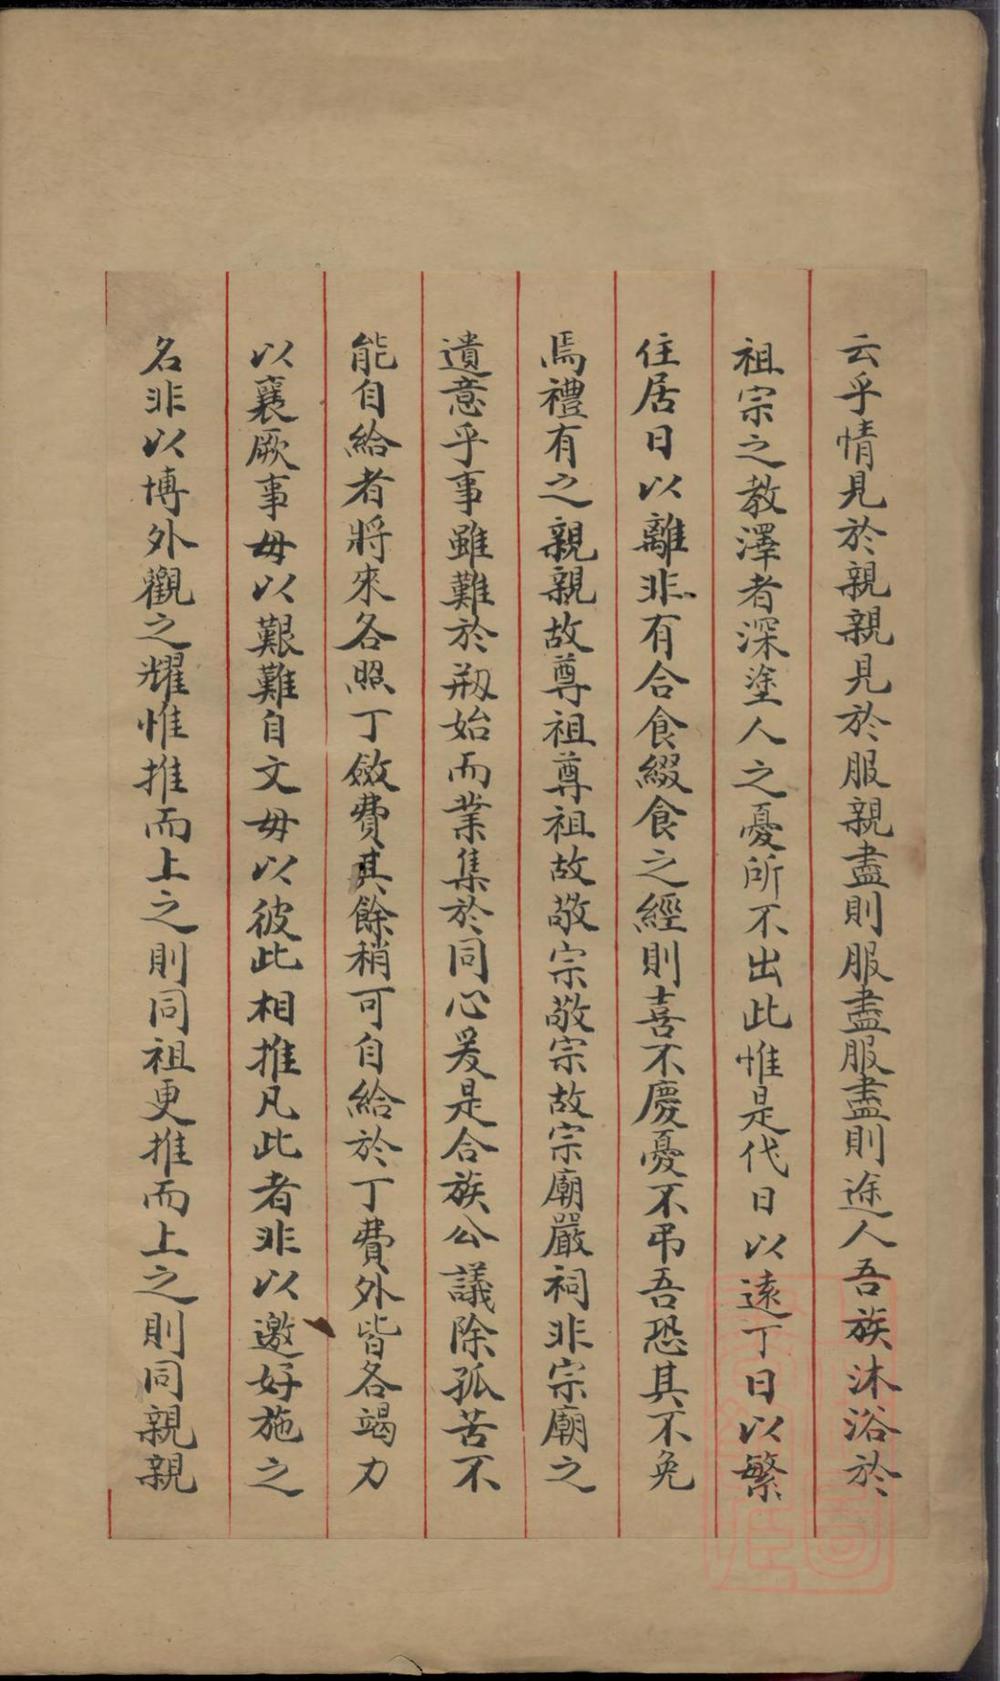 云乎情見於親親見於服親盡則服盡服盡則途人吾族沐浴於
祖宗之教澤者深塗人之憂所不出此惟是代日以遠丁日以繁
住居日以離非有合食綴食之經則喜不慶憂不弔吾恐其不免
焉禮有之親親故尊祖尊祖故敬宗敬宗故宗廟嚴祠非宗廟之
遺意乎事雖難於剏始而業集於同心爰是合族公議除孤苦不
能自給者將來各照丁斂費其餘稍可自給於丁費外皆各竭力
以襄厥事毋以艱難自文毋以彼此相推凡此者非以邀好施之
名非以博外觀之耀惟推而上之則同祖更推而上之則同親親